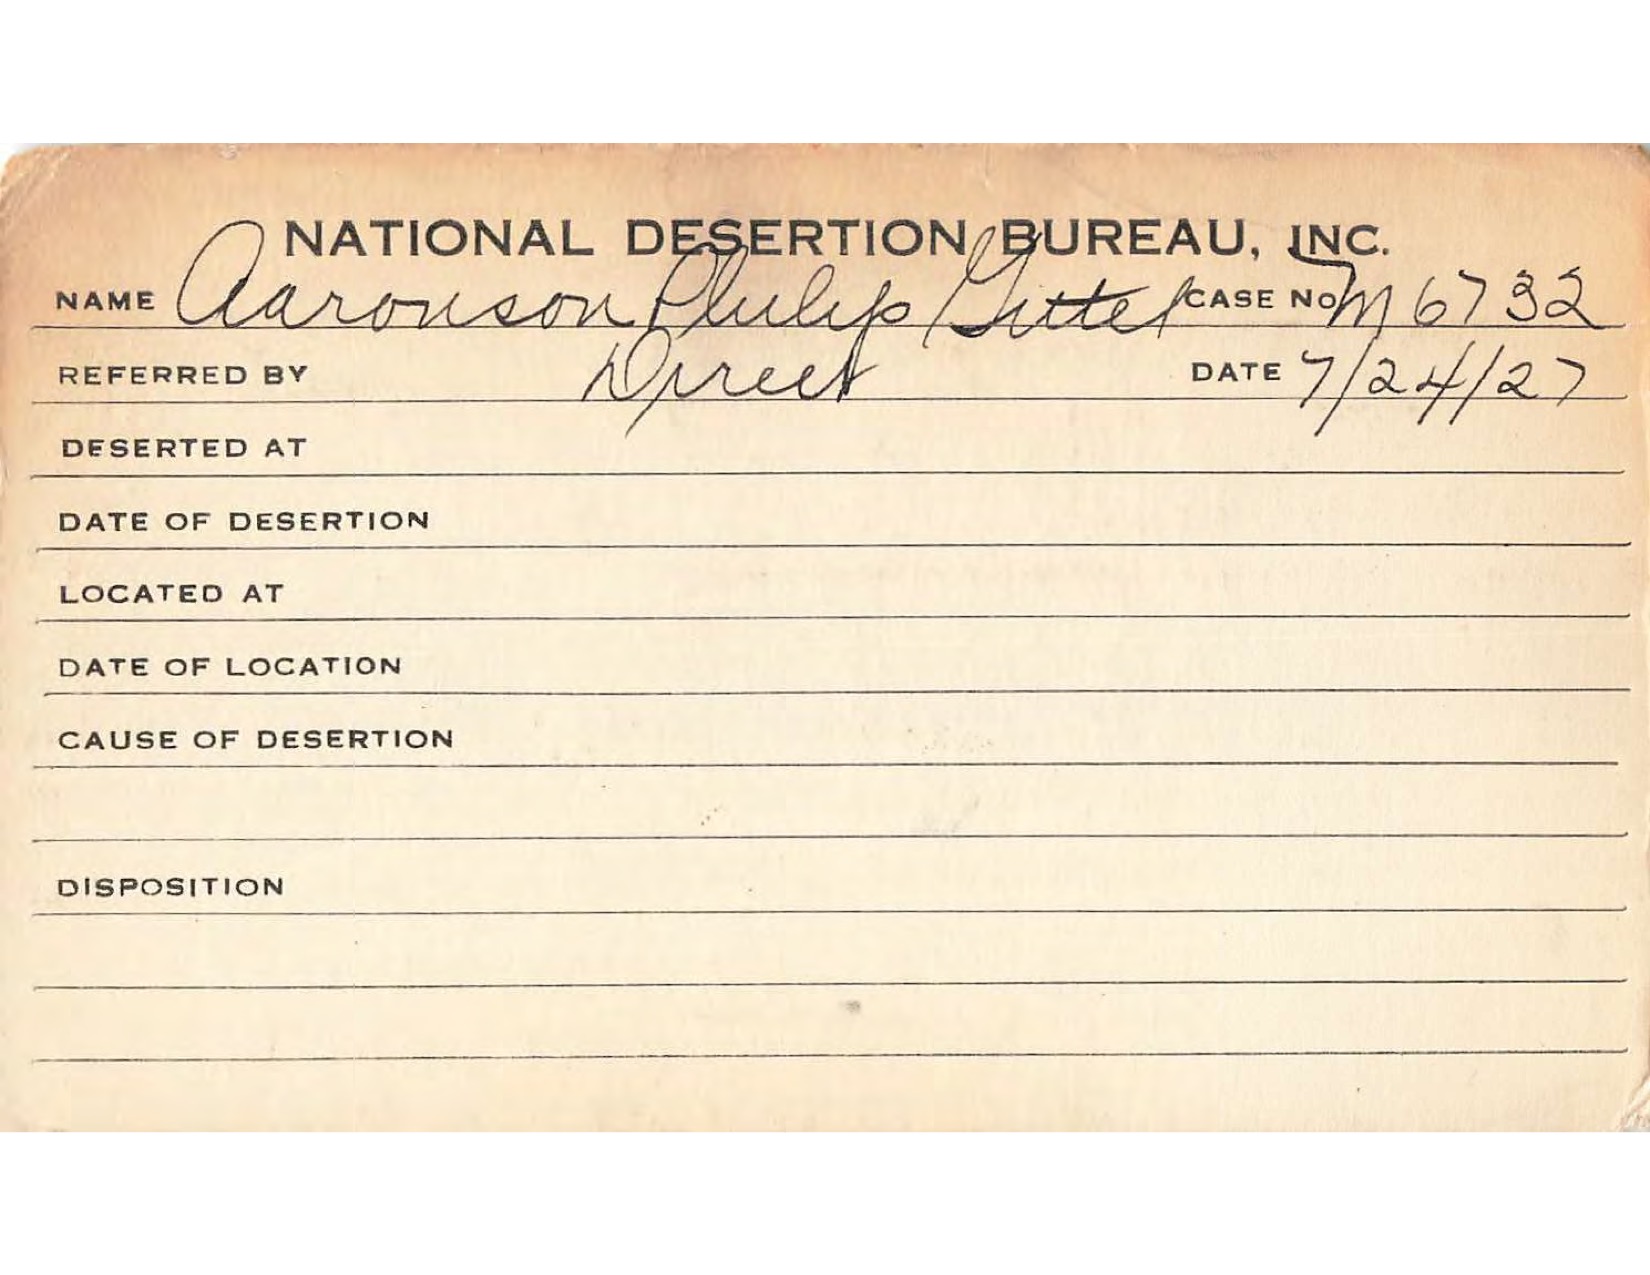 NATIONAL DESERTION BUREAU, INC.
NAME Aaronson Philip (Gittel) CASE NO. M6732
REFERRED BY Direct DATE 7/24/27
DESERTED AT
DATE OF DESERTION
LOCATED AT
DATE OF LOCATION
CAUSE OF DESERTION
DISPOSITION